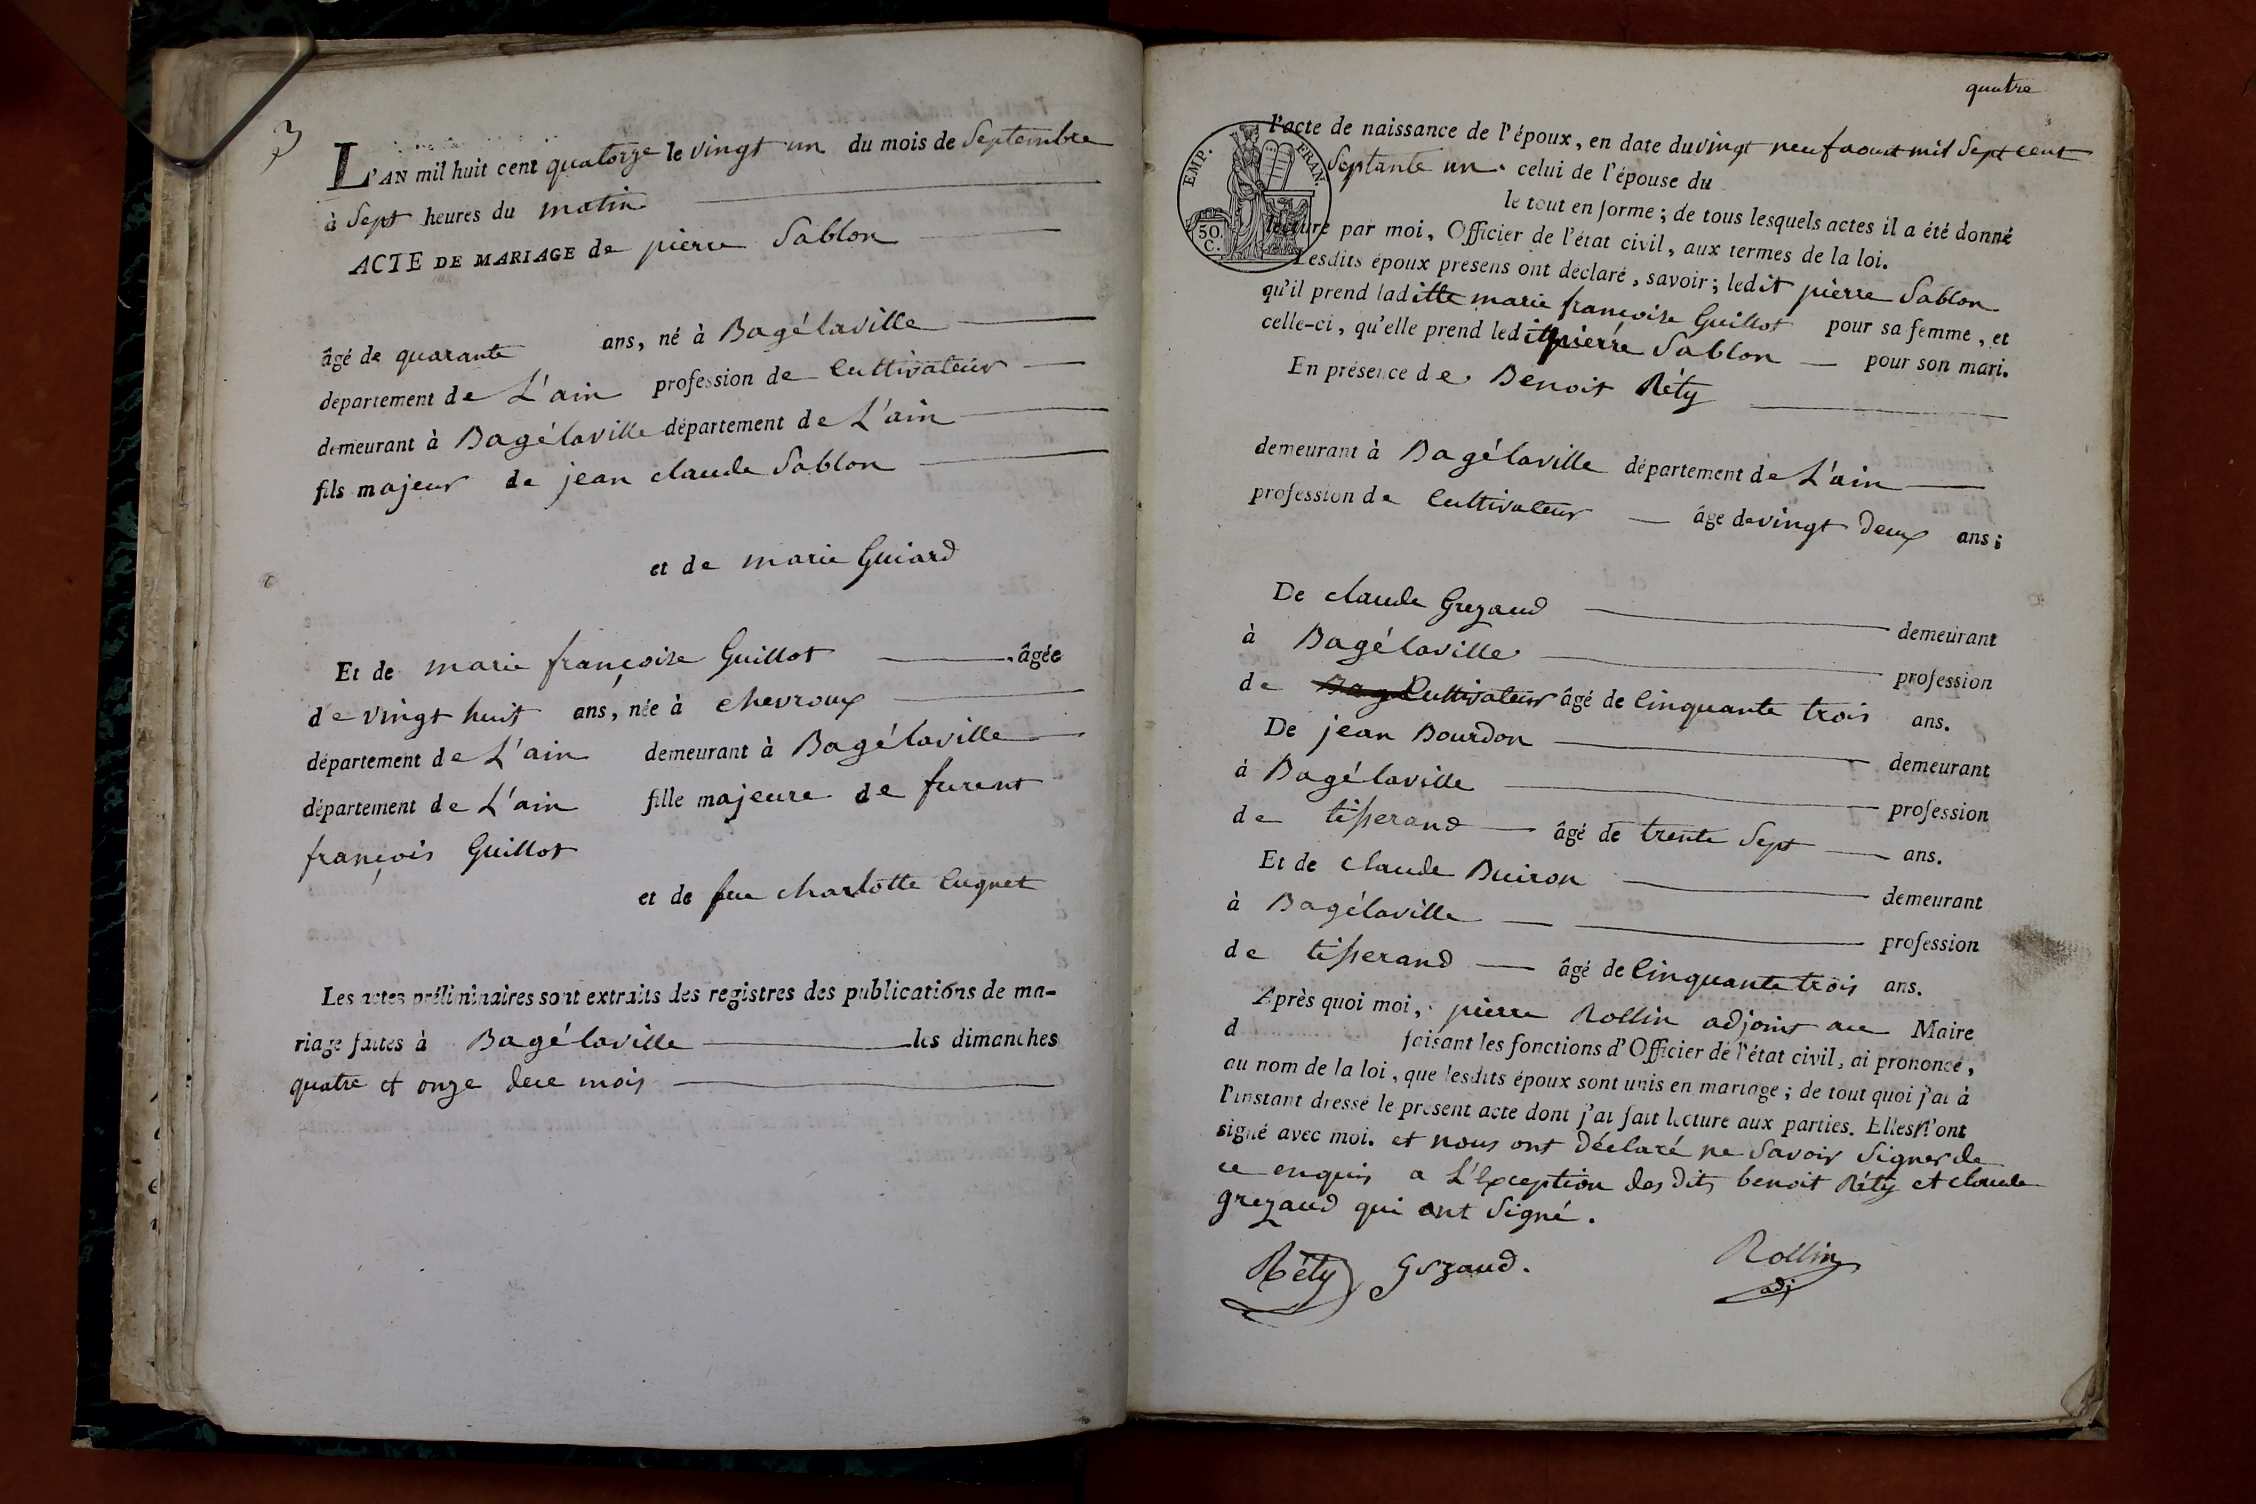 3
L'AN mil huit cent quatorze le vingt un du mois de Septembre
à Sept heures du matin
ACTE DE MARIAGE de pierre Sablon
âgé de quarante ans, né à Bagélaville
département de L'ain profession de Cultivateur
demeurant à Bagélaville département de L'ain
fils majeur de jean claude Sablon
et de marie Guiard
Et de marie françoise Guillot âgée
de vingt huit ans, née à chevroux
département de L'ain demeurant à Bagélaville
département de L'ain fille majeure de furent
françois Guillot
et de feu charlotte Cugnet
Les actes préliminaires sont extraits des registres des publications de ma-
riage faites à Bagélaville les dimanches
quatre et onze dece mois
quatre
l'acte de naissance de l'époux, en date du vingt neuf aoust mil Sept cent
EMP. FRAN.
Septante un. celui de l'épouse du
le tout en forme; de tous lesquels actes il a été donné
50 C.
lecture par moi, Officier de l'état civil, aux termes de la loi.
Lesdits époux présens ont déclaré, savoir; ledit pierre Sablon
qu'il prend laditte marie françoise Guillot pour sa femme, et
celle-ci, qu'elle prend ledit pierre Sablon pour son mari.
En présence de Benoit Réty
demeurant à Bagélaville département de L'ain
profession de Cultivateur âgé de vingt deux ans;
De claude Grezaud demeurant
à Bagélaville profession
de Cultivateur âgé de Cinquante trois ans.
De jean Bourdon demeurant
à Bagélaville profession
de tisserand âgé de trente Sept ans.
Et de claude Buiron demeurant
à Bagélaville profession
de tisserand âgé de Cinquante trois ans.
Après quoi moi, pierre Rollin adjoint au Maire
d faisant les fonctions d'Officier de l'état civil, ai prononcé,
au nom de la loi, que lesdits époux sont unis en mariage; de tout quoi j'ai à
l'instant dressé le présent acte dont j'ai fait lecture aux parties. Elles n'ont
signé avec moi. et nous ont déclaré ne Savoir Signer de
ce enquis a L'Exception des dits benoit Réty et claude
grezaud qui ont Signé.
Réty Grzaud. Rollin
adj